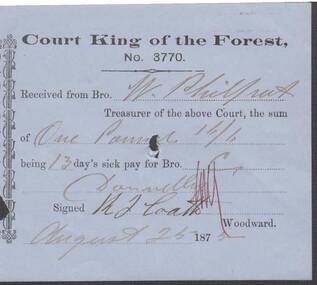 Court King of the Forest,
No. 3770.
Received from Bro. W. Philpot
Treasurer of the above Court, the sum
of One Pound 16/6
being 13 day's sick pay for Bro.
Donnelly
Signed R J Coath
Woodward.
August 25 187